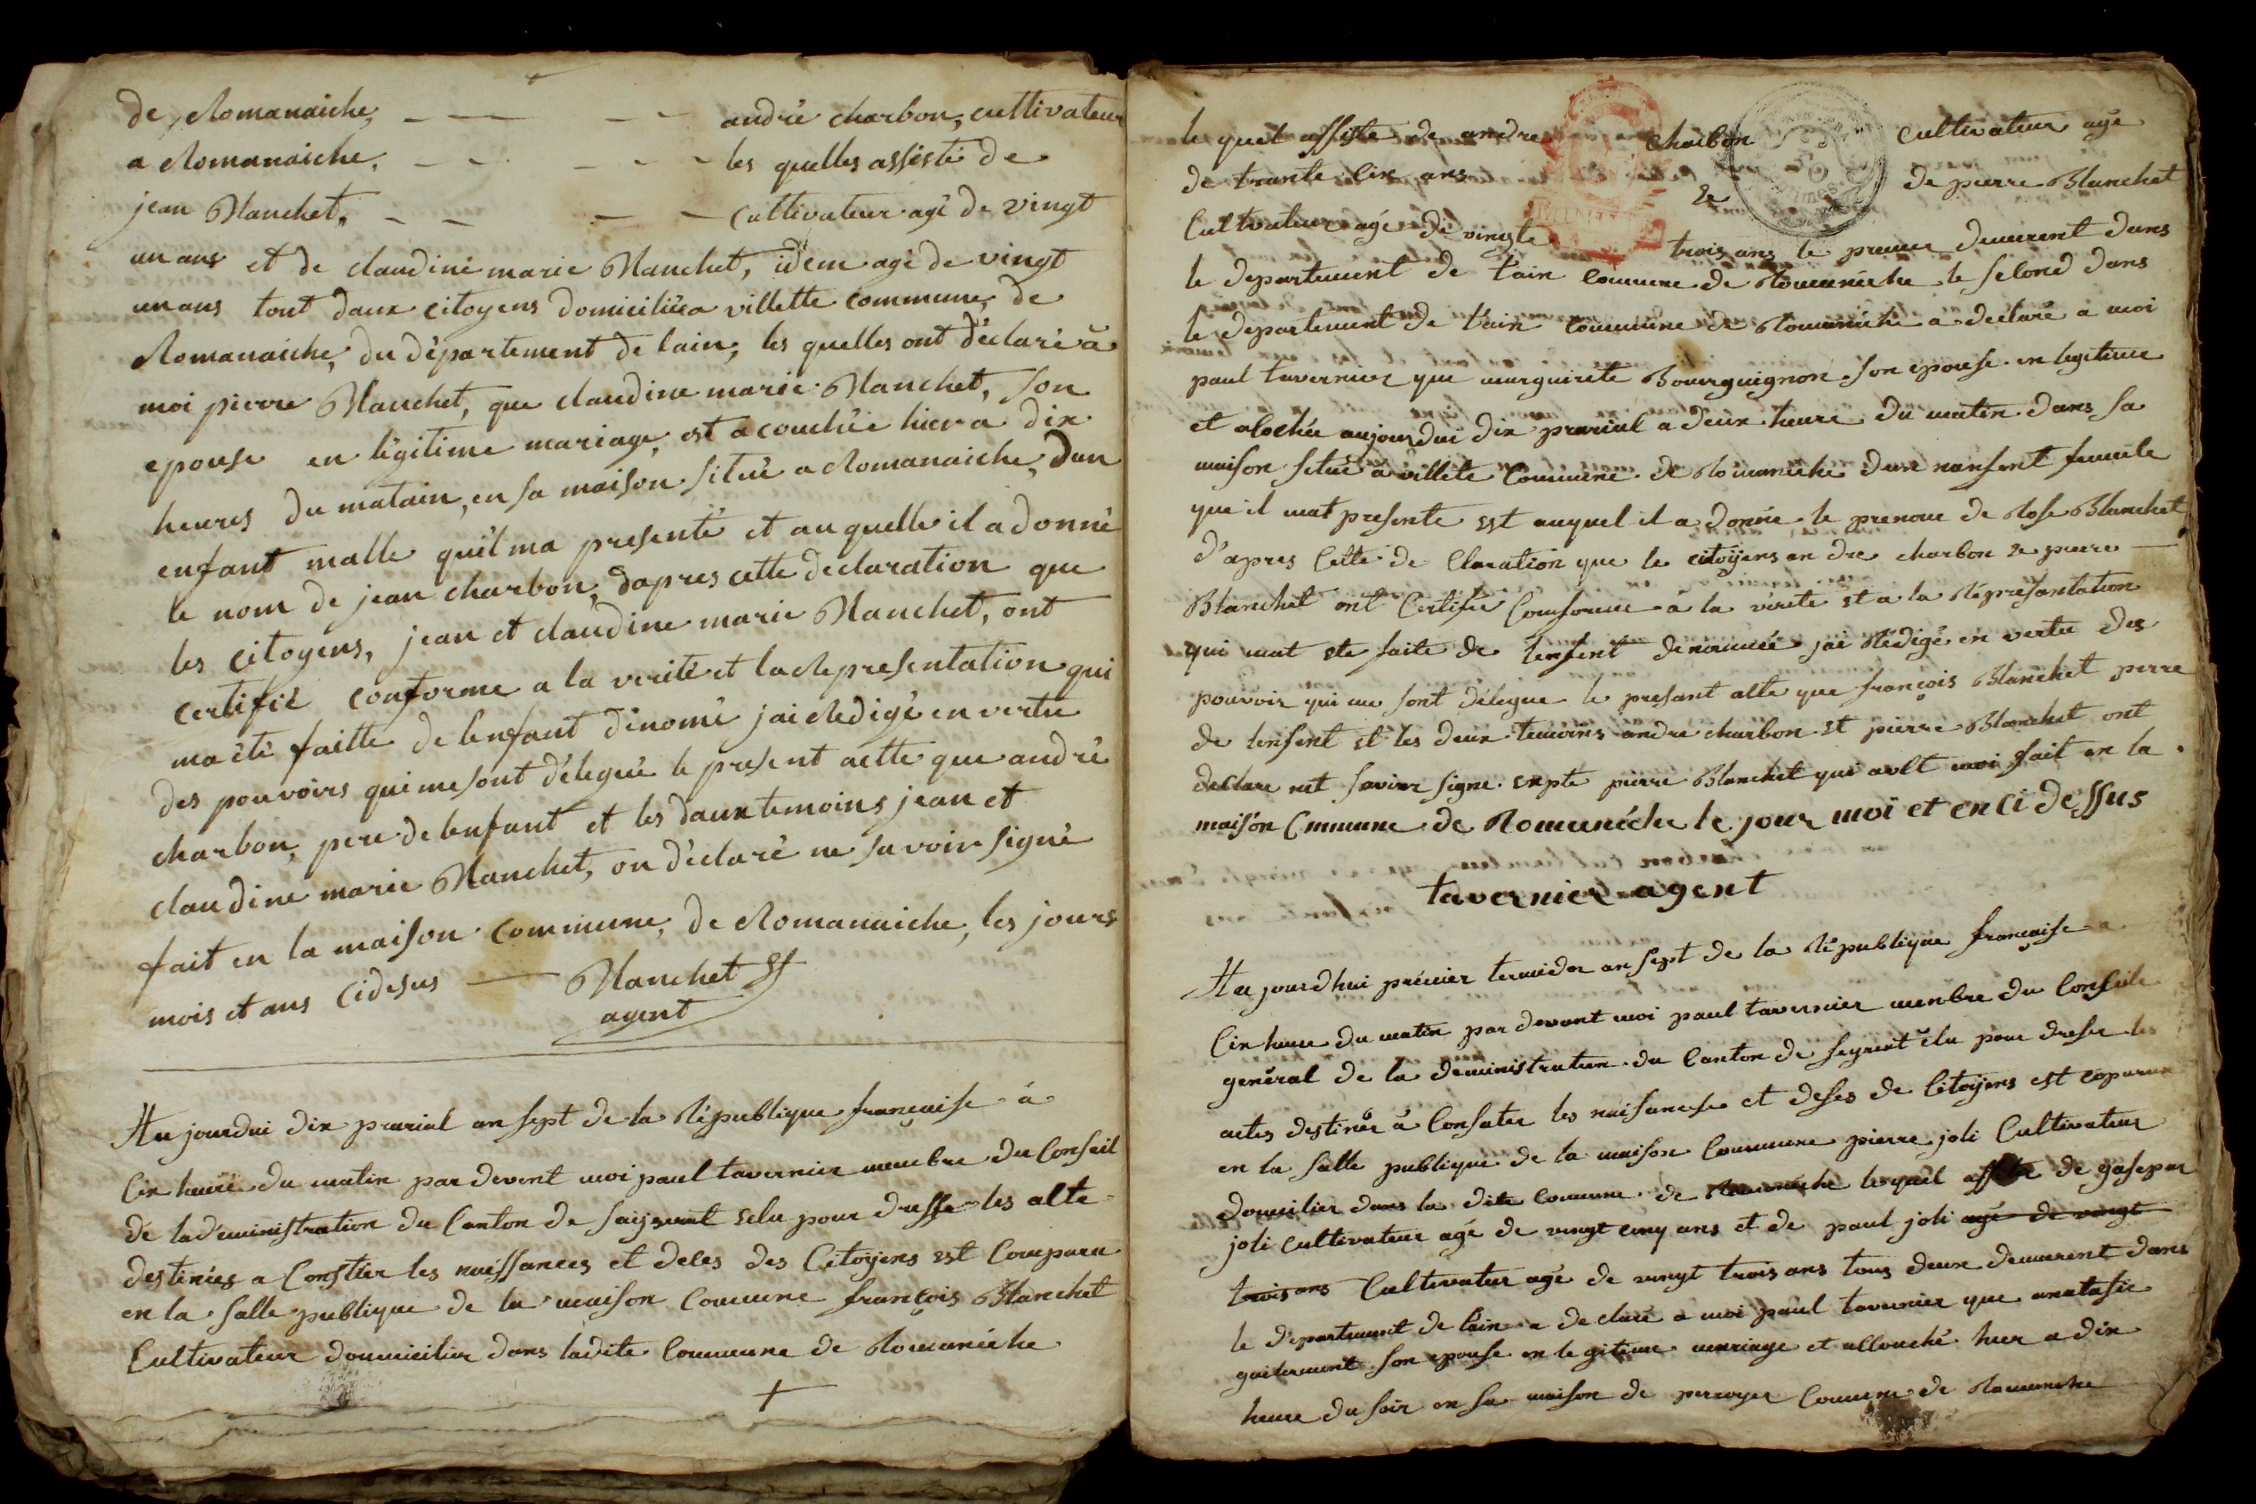 de Romanaiche, — — — — — andré charbon, cultivateur
a Romanaiche, — — — — — les quelles assisté de
jean Blanchet, — — — — cultivateur agé de vingt
un ans et de claudine marie Blanchet, idem agé de vingt
un ans tout daux citoyens domiciliéa villette commune, de
Romanaiche, du département de lain, les quelles ont déclaré à
moi pierre Blanchet, que claudine marie Blanchet, son
epouse en légitime mariage, est acouchée hier a dix
heures du matain, en sa maison située a Romanaiche, dun
enfant malle quil ma presenté et au quelle il a donné
le nom de jean charbon, dapres cette declaration que
les citoyens, jean et claudine marie Blanchet, ont
certifié conforme a la verité et la Representation qui
ma été faitte de lenfant dénomé jai Redigé en vertu
des pouvoirs qui me sont délegué le present actte que andré
charbon, pere de lenfant et les daux temoins jean et
claudine marie Blanchet, on déclaré ne savoir signé
fait en la maison commune, de Romanaiche, les jours
mois et ans cidesus — Blanchet
agent
Au jourdui dix prarial an sept de la République française à
Cix heure du matin par devent moi paul tavernier membre du Conseil
de ladéministration du Canton de elu pour dresse les alte
destinées a Constier les naissances et deles des Citoyens est Comparu
en la salle publique de la maison Comune françois Blanchet
Cultivateur doumicilier dans ladite Commune de Romanéche
le quel assiste de andre charbon cultivateur agé
de trante Cix ans 2e de pierre Blanchet
Cultivateur agé de vingte trois ans le premier demeurent dans
le departement de l'ain commune de Romanéche le second dans
le departement de l'ain commune de Romanéche a declaré a moi
paul tavernier que marguirete Bourguignon son epouse en legitime
et alochée aujourdui dix prarial a deux heure du matin dans sa
maison situé à villete Commune de Romaneche dun nansent femele
que il mat presente est auquel il a donnée le prenome de Rose Blanchet
d'apres Cette de Claration que le citoyens andre charbon 2e pierre
Blanchet ont Certifié Conforme à la vérite et a la Répresantation
qui mat ete faite de lenfent denommée jai Rédigé en vertu des
pouvoir qui me sont délegue le presant alte que françois Blanchet perre
de lenfent et les deux temoins andre charbon et pierre Blanchet ont
declare net savior signe exepte pierre Blanchet qui avlt moi fait en la
maison Cmmune de Romanéche le jour moi et en ci dessus
tavernier agent
Au jourdhui prémier termidor an sept de la République française a
Cix heure du matin par devant moi paul tavernier menbre du Conseile
genéral de la deministration du Canton de élu pour dreser les
actes destinér à Consater les naisancese et deses de Citoyens est coparue
en la salle publique de la maison Commune pierre joli Cultivateur
domicilier dans la dite comune de Romanéche lequel de gaspar
joli cultivateur agé de vingt cinq ans et de paul joli agé de vingt
trois ans Cultivateur agé de vingt trois ans tous deux demeurent dans
le département de lain a declaré a moi paul tavernier que anatasie
son epouse en legitime mariage et allouché hier a dix
heure du soir en sa maison de Comune de Romaneche